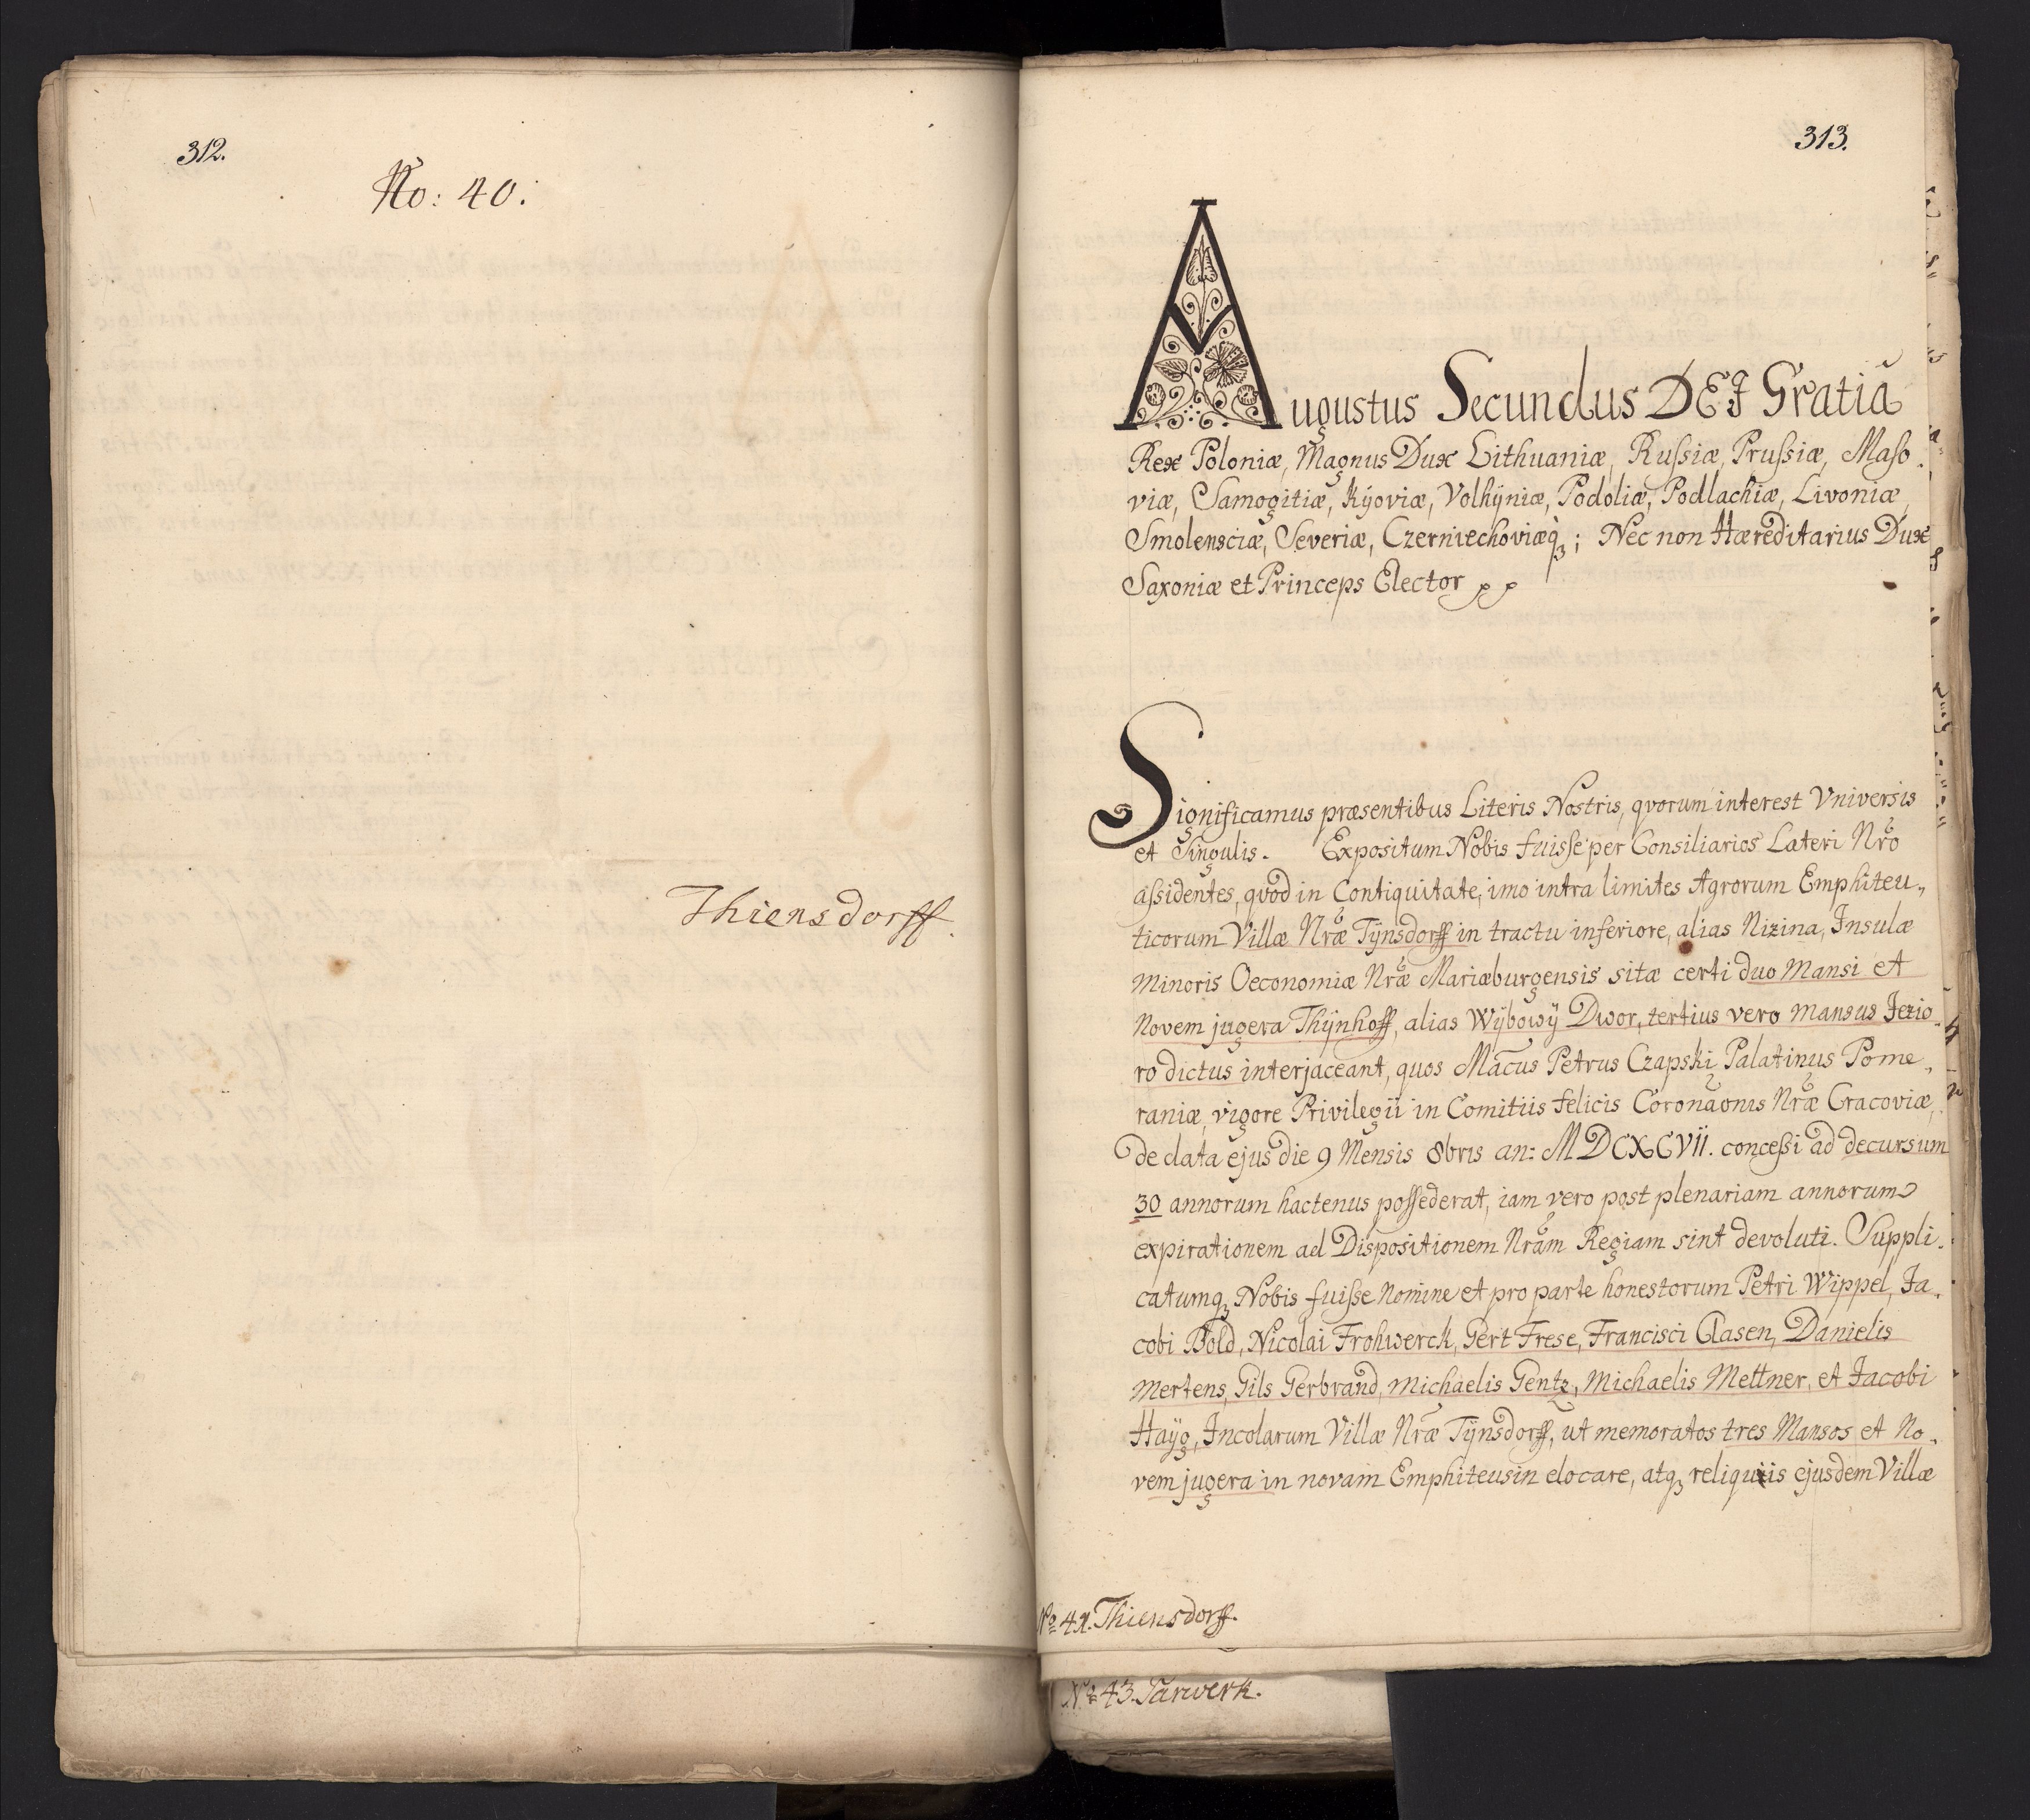 312.
No: 40.
Thiensdorff.
313.
Augustus Secundus DEI Gratiâ
Rex Poloniæ, Magnus Dux Lithuaniæ, Russiæ, Prussiæ, Maso-
viæ, Samogitiæ, Kÿoviæ, Volhÿniæ, Podoliæ, Podlachiæ, Livoniæ,
Smolensciæ, Severiæ, Czerniechoviæq́ꝫ; Nec non Hæreditarius Dux
Saxoniæ et Princeps Elector pp
Significamus præsentibus Literis Nostris, qvorum interest Vniversis
et Singulis. Expositum Nobis fuisse per Consiliarios Lateri Nrõ
assidentes, qvòd in Contiquitate, imo intra limites Agrorum Emphiteu„
ticorum Villæ Nræ̃ Tÿnsdorff in tractu inferiore, alias Nizina, Insulæ
Minoris Oeconomiæ Nræ̃ Mariæburgensis sitæ certi duo Mansi et
Novem jugera Thÿnhoff, alias Wÿbowÿ Dwor, tertius vero mansus Jezio-
ro dictus interjaceant, quos Mãcus Petrus Czapski Palatinus Pome„
raniæ, vigore Privilegii in Comitiis felicis Coronãonis Nræ̃ Cracoviæ,
de data ejus die 9 Mensis 8bris an: MDCXCVII. concessi ad decursum
30 annorum hactenus possederat, iam vero post plenariam annorum
expirationem ad Dispositionem Nrãm Regiam sint devoluti. Suppli-
catumqꝫ Nobis fuisse Nomine et pro parte honestorum Petri Wippel, Ja-
cobi Bold, Nicolai Frohwerck, Gert Frese, Francisci Clasen, Danielis
Mertens, Gils Gerbrand, Michaelis Gentz, Michaelis Mettner, et Jacobi
Haÿg, Incolarum Villæ Nræ̃ Tÿnsdorff, ut memoratos tres Mansos et No„
vem jugera in novam Emphiteusin elocare, atqꝫ reliquiis ejusdem Villæ
No 41. Thiensdorff.
No 43.